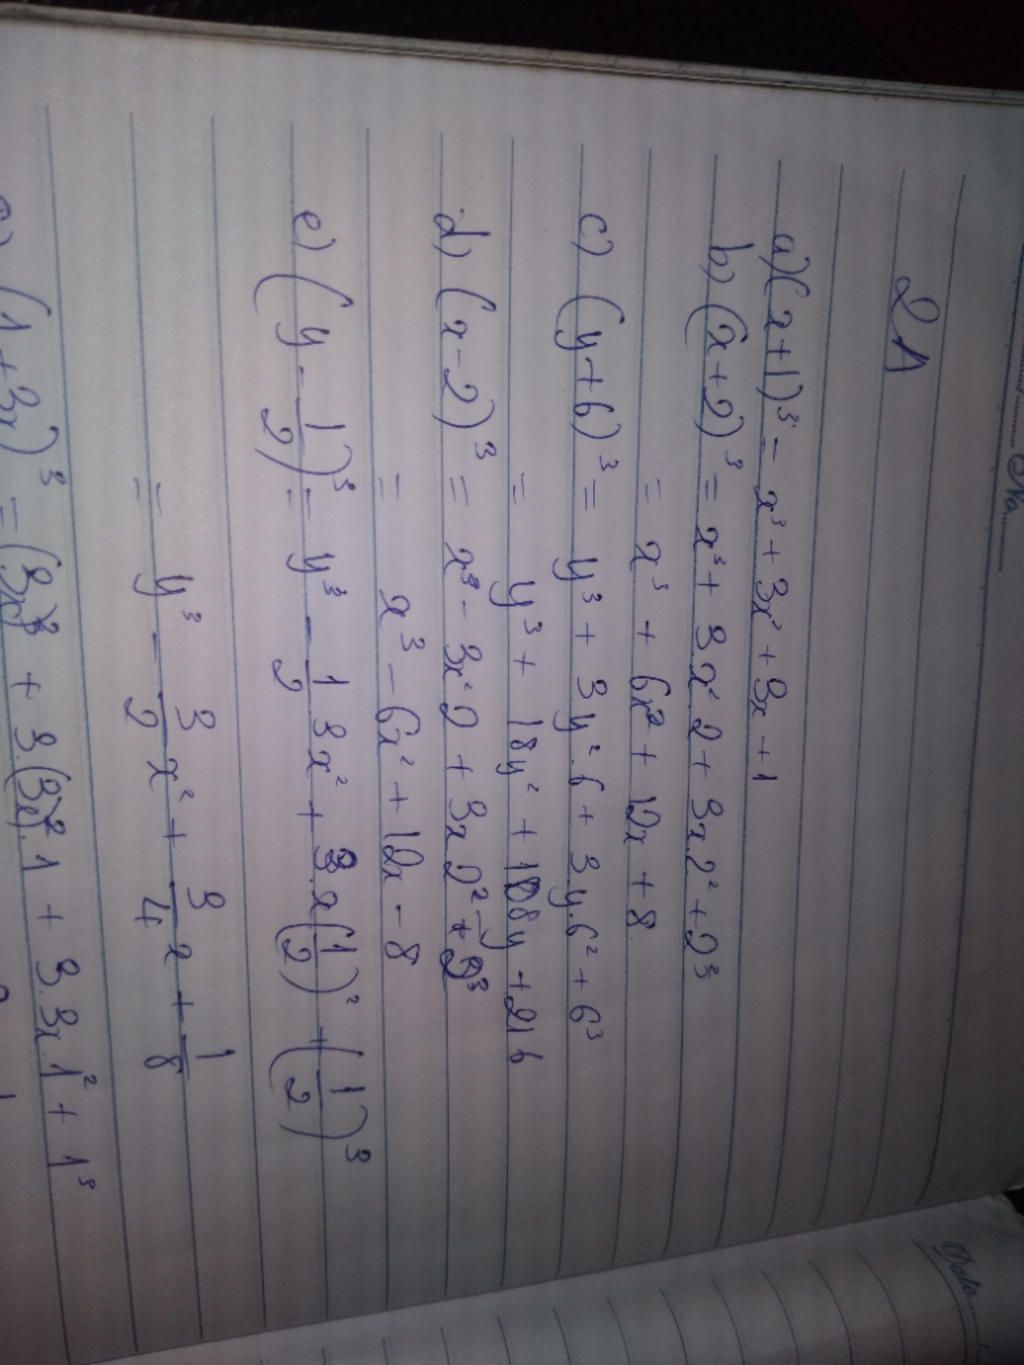 No.........
Date........
21
a) (x+1)³ = x³ + 3x² + 3x + 1
b) (x+2)³ = x³ + 3x² 2 + 3x.2² + 2³
= x³ + 6x² + 12x + 8
c) (y+6)³ = y³ + 3y².6 + 3y.6² + 6³
= y³ + 18y² + 108y + 216
d) (x-2)³ = x³ - 3x².2 + 3x 2² - 2³
= x³ - 6x² + 12x - 8
e) (y - 1/2)³ = y³ - 1/2 3x² + 3.x(1/2)² + (1/2)³
= y³ - 3/2 x² + 3/4 x + 1/8
(1+3x)³ = (3x)³ + 3.(3x)².1 + 3.3x.1² + 1³